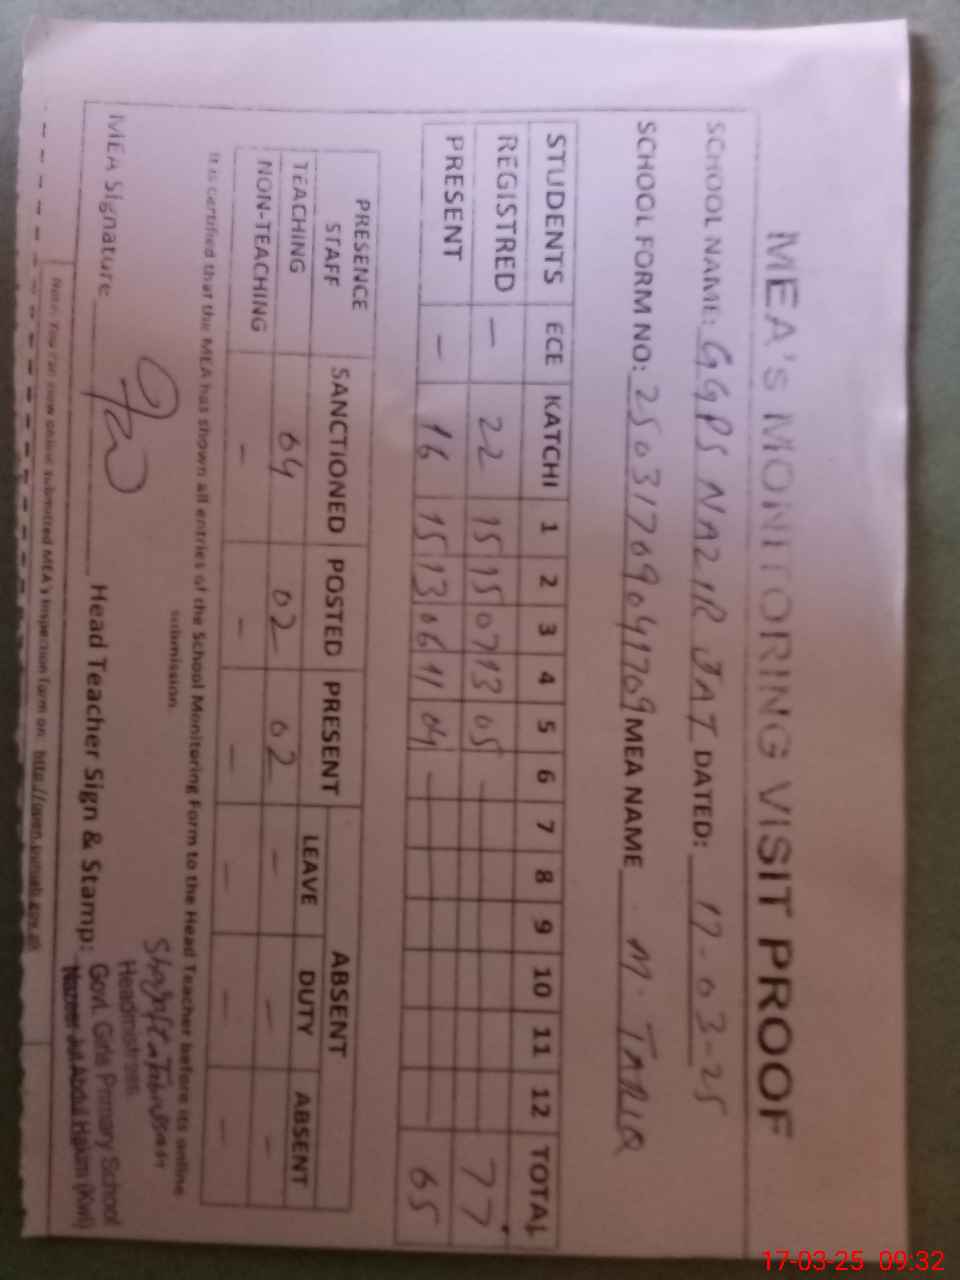 MEA's MONITORING VISIT PROOF
SCHOOL NAME: GGPS NAZIR JAT DATED: 17-03-25
SCHOOL FORM NO: 25031769041709 MEA NAME M. TARIQ
STUDENTS ECE KATCHI 1 2 3 4 5 6 7 8 9 10 11 12 TOTAL
REGISTRED - 22 15 15 07 13 05 - 77
PRESENT - 16 15 13 06 11 04 - 65
PRESENCE STAFF SANCTIONED POSTED PRESENT ABSENT
LEAVE DUTY ABSENT
TEACHING 04 02 02 - - -
NON-TEACHING - - - - - -
It is certified that the MEA has shown all entries of the School Monitoring Form to the Head Teacher before its online
submission.
MEA Signature Head Teacher Sign & Stamp:
Headmistress
Govt. Girls Primary School
Nazeer Jat Abdul Hakim (Kwl)
Note: You can view online submitted MEA's Inspection form on: http://open.punjab.gov.pk
17-03-25 09:32